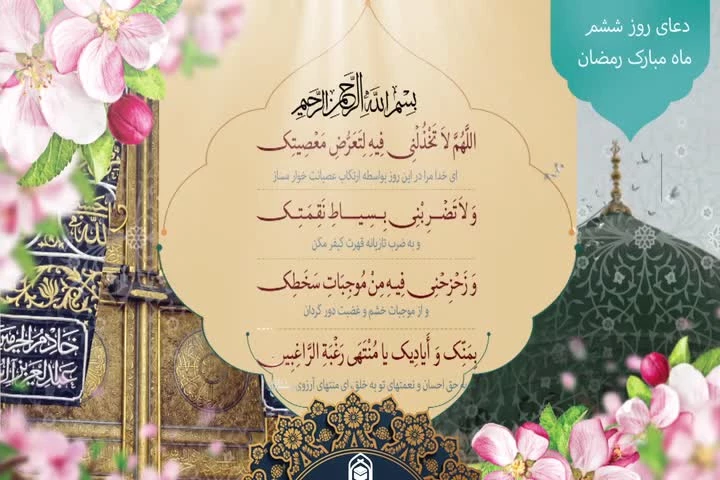 دعای روز ششم
ماه مبارک رمضان
بِسْمِ اللَّهِ الرَّحْمَنِ الرَّحِيمِ
اللَّهُمَّ لاَ تَخْذُلْنِی فِیهِ لِتَعَرُّضِ مَعْصِیَتِکَ
ای خدا مرا در این روز بواسطه ارتکاب عصیانت خوار مساز
وَ لاَ تَضْرِبْنِی بِسِیاطِ نَقِمَتِکَ
و به ضرب تازیانه قهرت کیفر مکن
وَ زَحْزِحْنِی فِیهِ مِنْ مُوجِبَاتِ سَخَطِکَ
و از موجبات خشم و غضبت دور گردان
بِمَنِّکَ وَ أَیَادِیکَ یَا مُنْتَهَى رَغْبَةِ الرَّاغِبِینَ
به حق احسان و نعمتهای تو به خلق، ای منتهای آرزوی
خادم الحرمين
عبدالعزيز